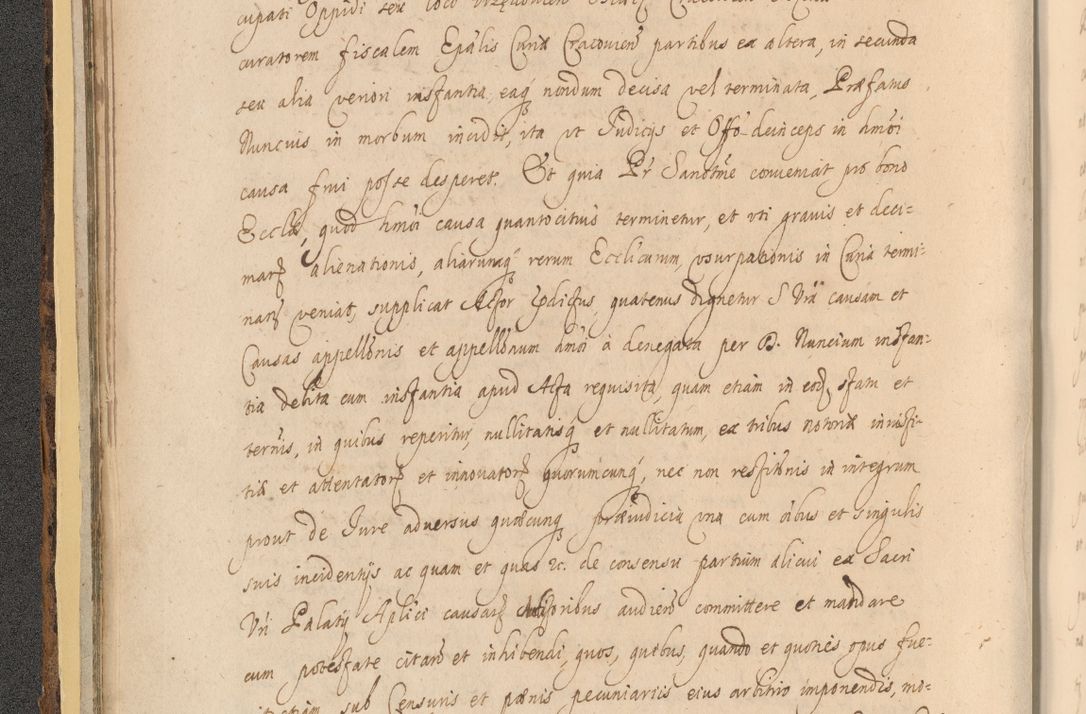 cupati Oppidi seu loco
curatorem fiscalem Epãlis Curiæ Cracovien̄ partibus ex altera, in secunda
seu alia veriori instantia, eaq̨ nondum decisa vel terminata, Præfatus
Nuncius in morbum incidit, ita vt Judicijs et Offõ deinceps in hmõi
causa frui posse desperet. Et quia Pr̃ Sanctme conveniat pro bono
Eccliæ, quod hmõi causa quantocitius terminetur, et vti gravis et deci-
marȝ alienationis, aliarumq̨ rerum Ecclicarum, vsurpationis in Curia termi-
narȝ veniat, supplicat Actor pdictus, quatenus dignetur S Vrã causam et
Causas appellõnis et appellõnum dmõi à denegata per D. Nuncium instan-
tia debita cum instantia apud Acta requisita, quam etiam in eodȝ statu et
ternis, in quibus reperitur, nullitatisq̨ et nullitatum, ex tribus notoriæ iniusti-
tiæ et attentatorȝ et innovatorȝ quorumcunq̨, nec non restitõnis in integrum
prout de Jure adversus quæcunq̨ præiudicia vna cum oĩbus et singulis
suis incidentijs ac quam et quas &c. de consensu partium alicui ex Sacri
Vri Palatij Aplici causarȝ Auditoribus audien̄ committere et mandare
cum potestate citan̄ et inhibendi, quos, quibus, quando et quoties opus fue-
etiam sub Censuris et pænis pecuniarijs eius arbitrio imponendis, mo-